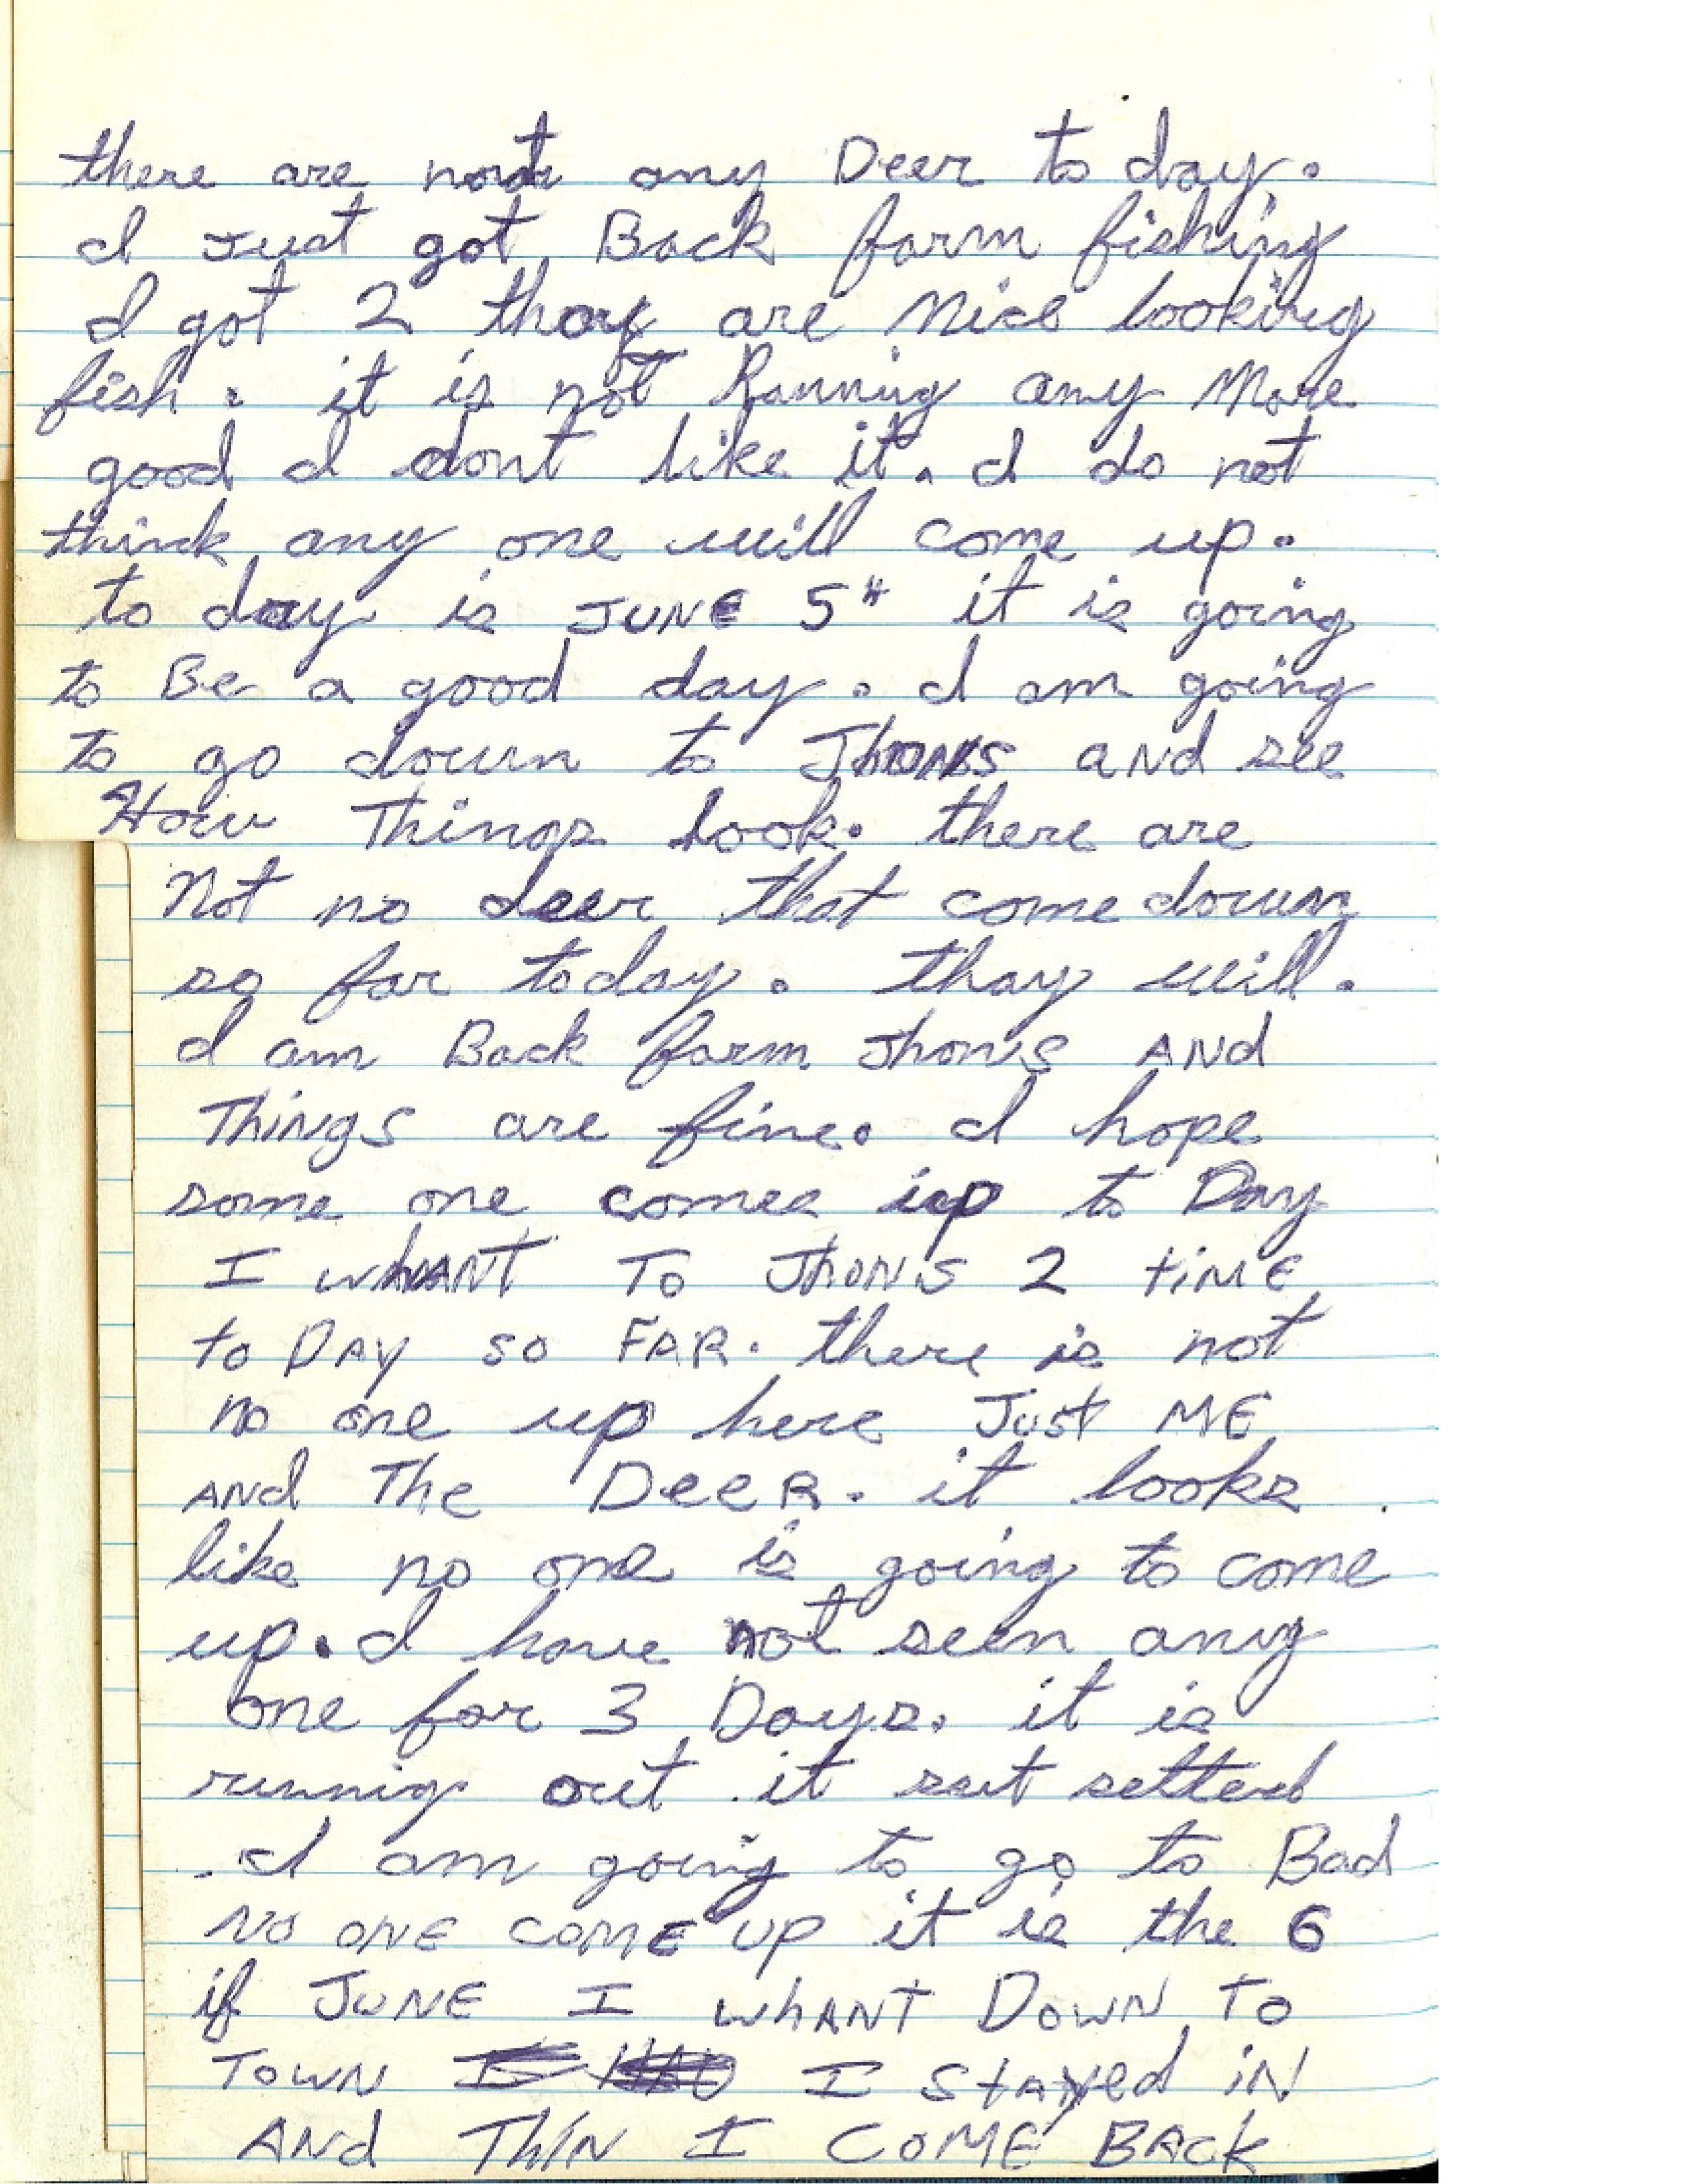 there are not any Deer to day.
I Just got Back farm fishing
I got 2 thay are Nice looking
fish. it is not Runnig any More
good I dont like it. I do not
think any one will come up.
to day is JUNE 5th it is going
to Be a good day. I am going
to go down to Jhons and see
How Things look. there are
Not no deer that come down
so far today. thay will.
I am Back farm Jhons And
Things are fine. I hope
some one comes up to Day
I whANT To Jhons 2 time
to DAY so FAR. there is not
no one up here Just ME
And The Deer. it looks
like no one is going to come
up. I have not seen any
one for 3 Days. it is
runnig out. it sut setted
I am going to go to Bad
No one come up it is the 6
if JUNE I whANT Down To
Town I stayed iN
And ThiN I COME BACK